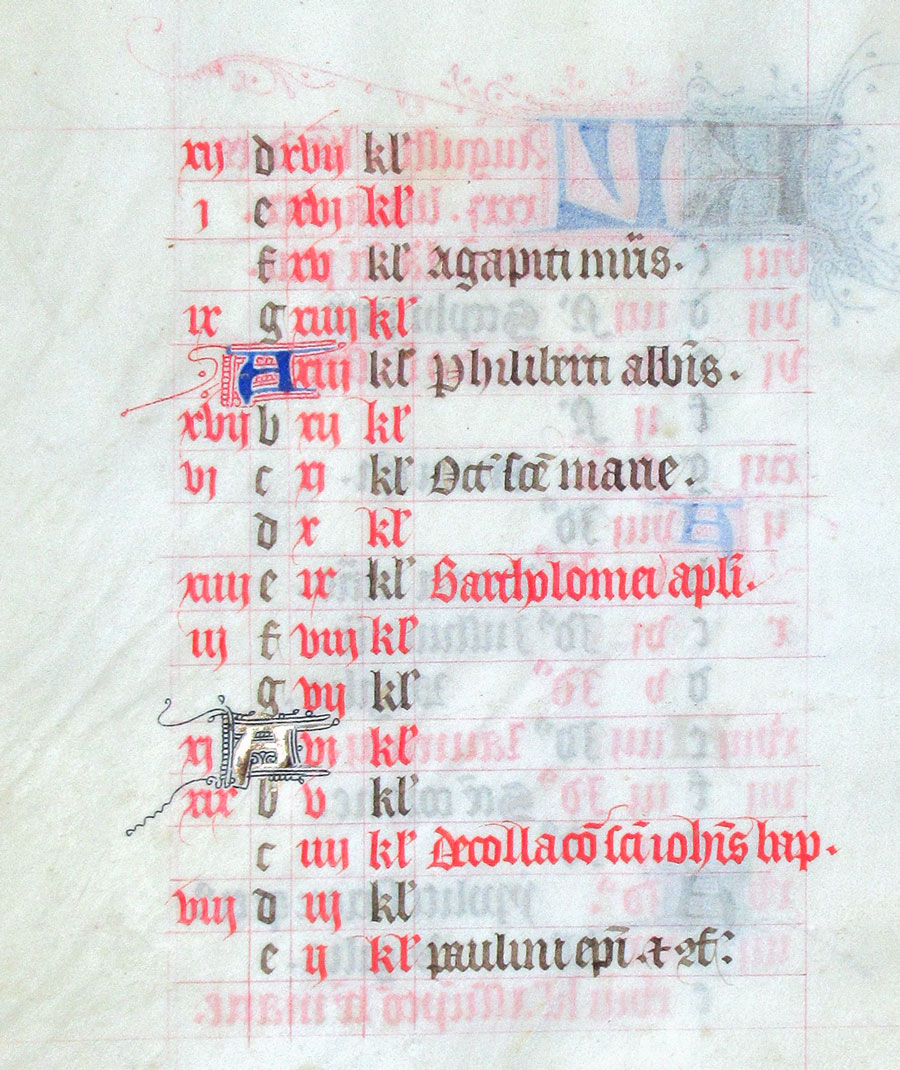 xij d xvij kl'
j e xvj kl'
f xv kl' Agapiti mr̄is.
ix g xiiij kl'
A xiij kl' Philiberti abb̄is.
xvij b xij kl'
vj c xj kl' Oct' sc̄e marie.
d x kl'
xiiij e ix kl' Bartholomei apl̄i.
iij f viij kl'
g vij kl'
xj A vj kl'
xix b v kl'
c iiij kl' Decollacō sc̄i ioh̄is bap.
viij d iij kl'
e ij kl' paulini ep̄i &